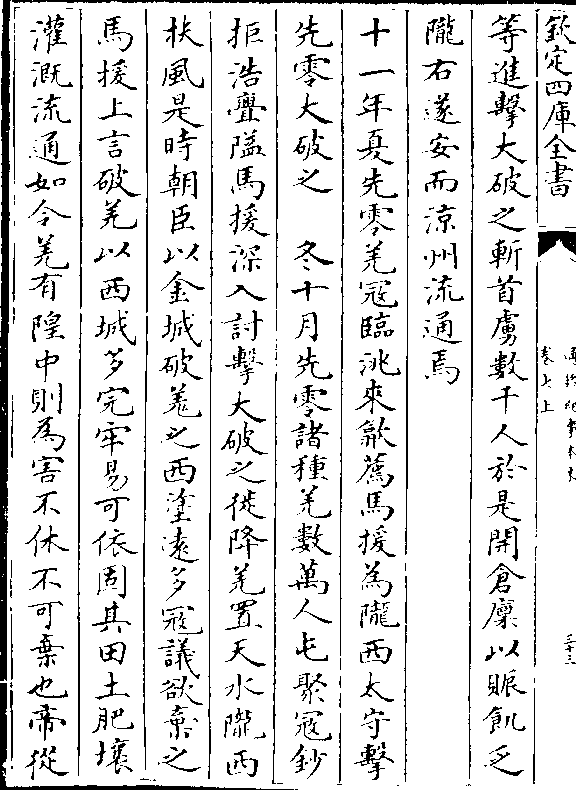 欽定四庫全書
卷七上
三十三
等進擊大破之斬首虜數千人於是開倉廩以賑飢乏
隴右遂安而涼州流通焉
十一年夏先零羌寇臨洮來歙薦馬援為隴西太守擊
先零大破之 冬十月先零諸種羌數萬人屯聚寇鈔
拒浩亹隘馬援深入討擊大破之徙降羌置天水隴西
扶風是時朝臣以金城破羌之西塗遠多寇議欲棄之
馬援上言破羌以西城多完牢易可依固其田土肥壤
灌溉流通如令羌有隍中則為害不休不可棄也帝從